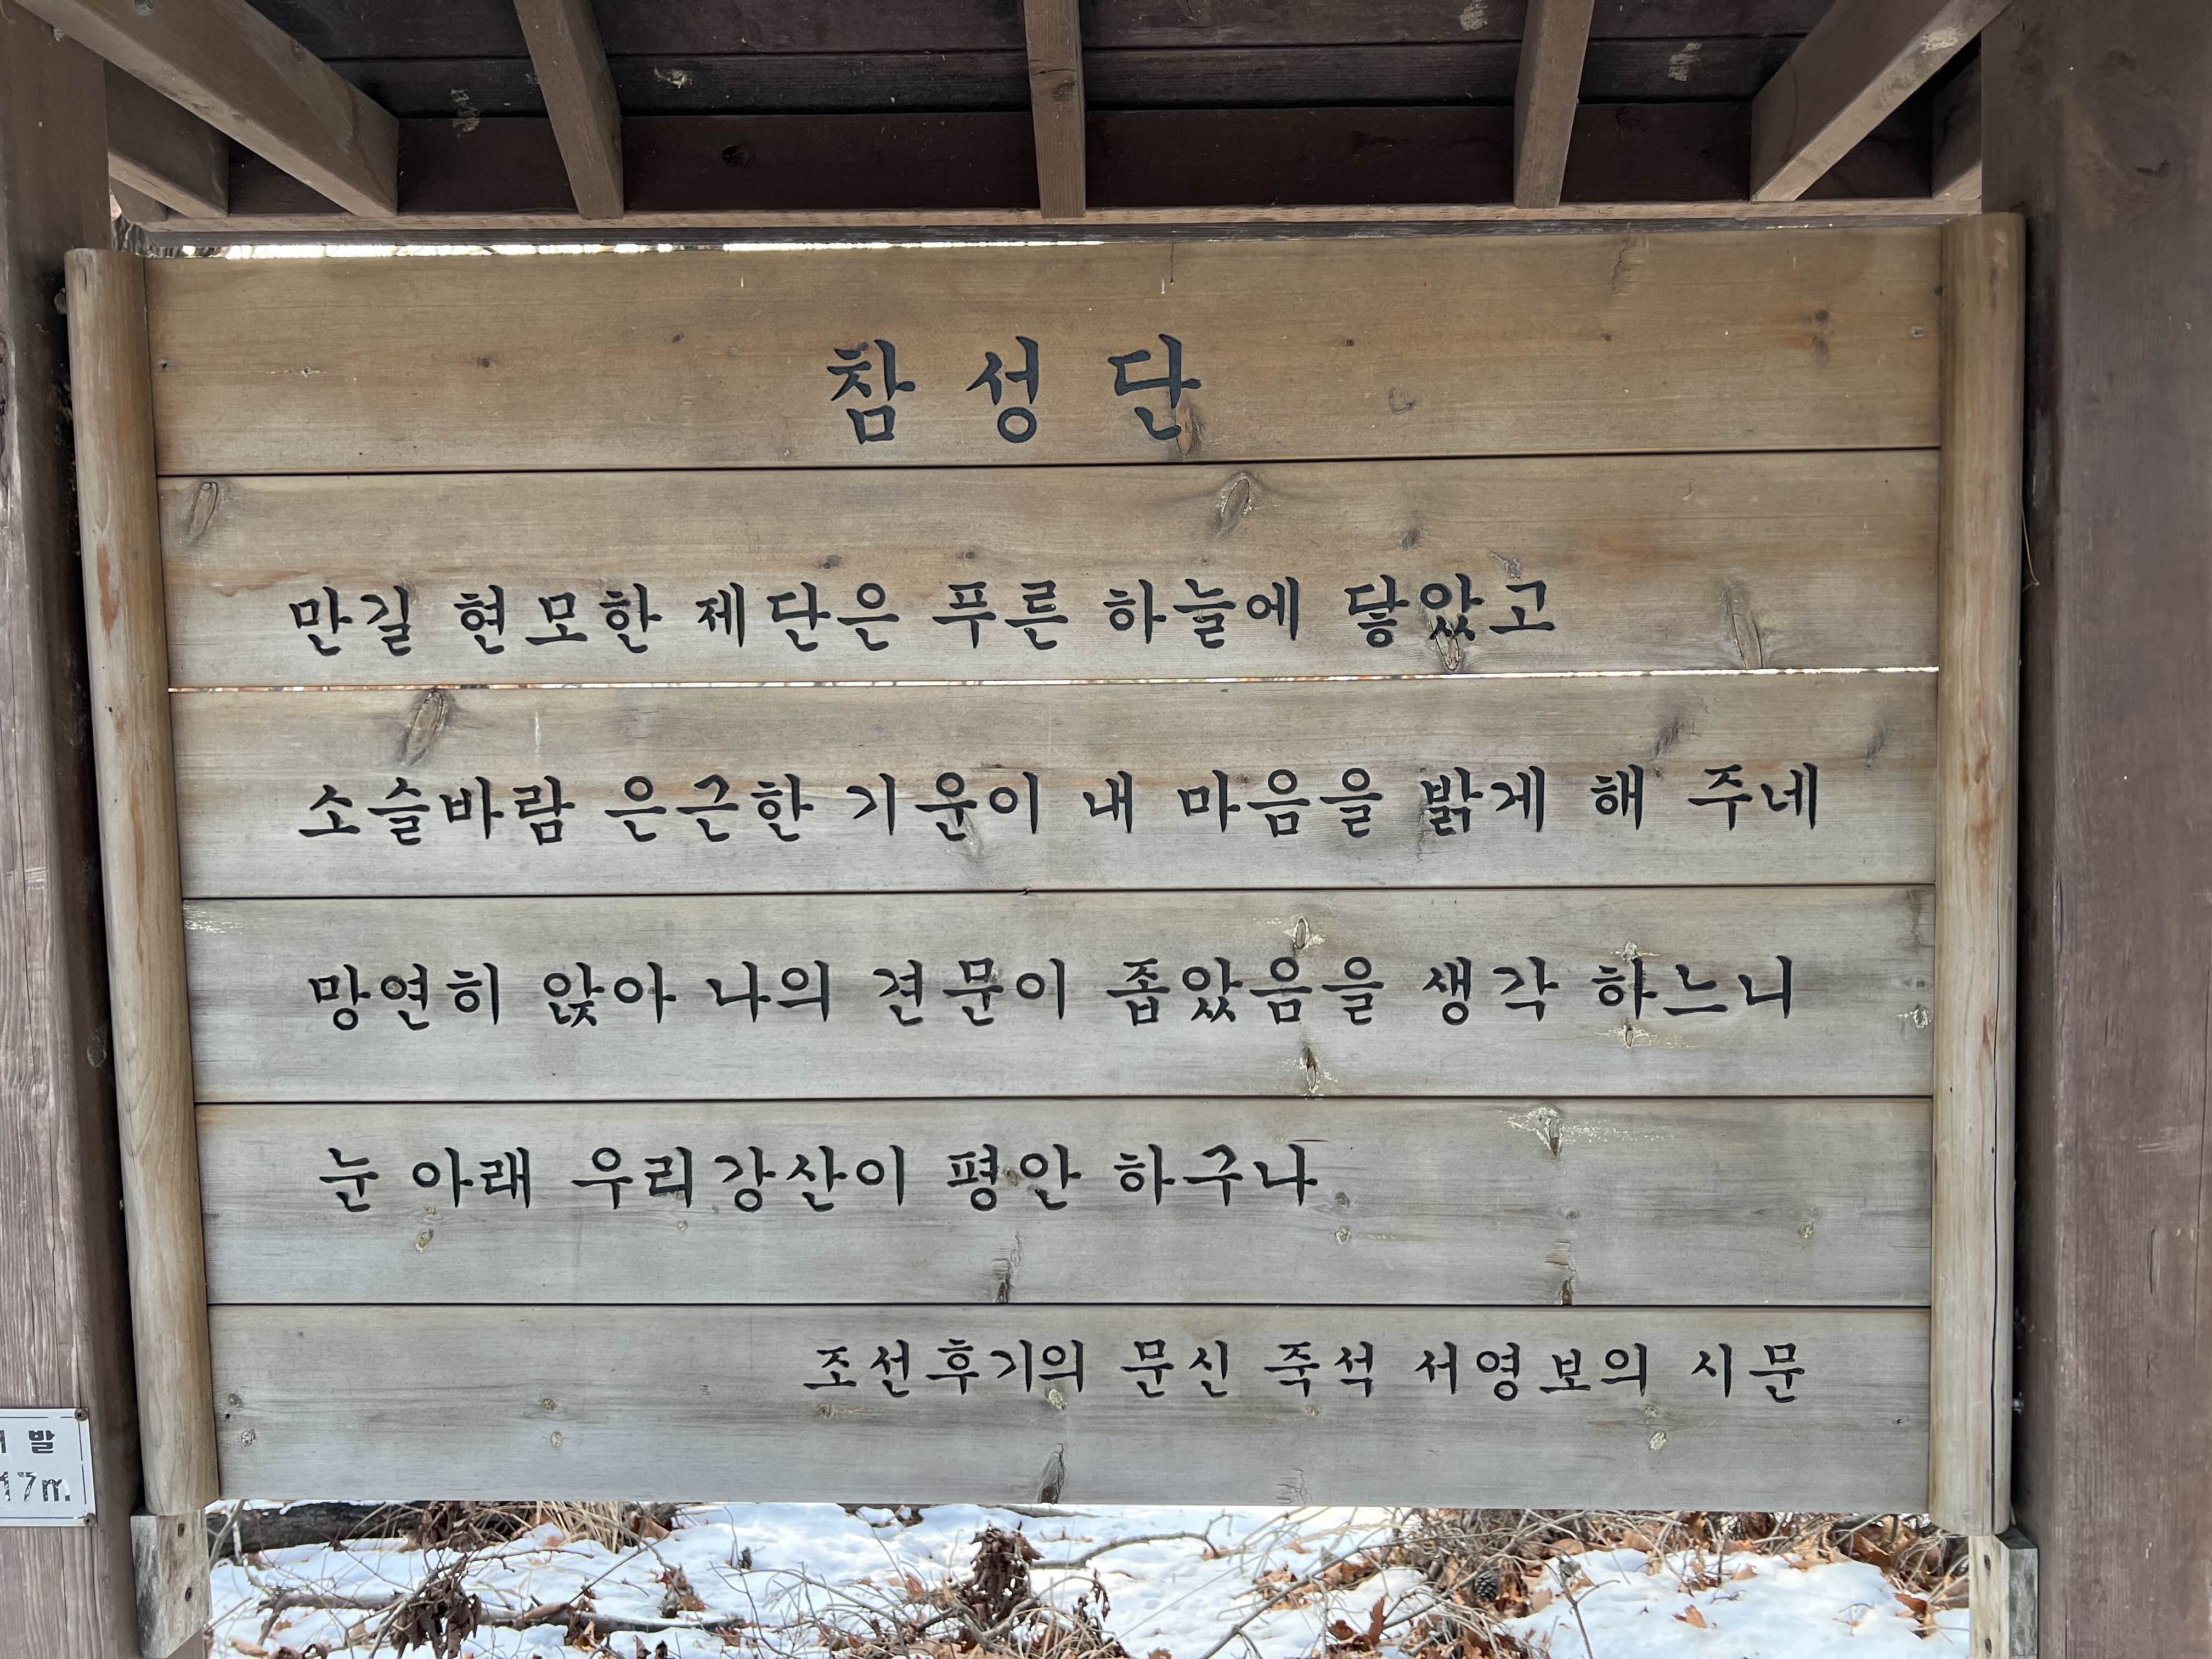 참성단
만길 현모한 제단은 푸른 하늘에 닿았고
소슬바람 은근한 기운이 내 마음을 밝게 해 주네
망연히 앉아 나의 견문이 좁았음을 생각 하느니
눈 아래 우리강산이 평안 하구나
조선후기의 문신 죽석 서영보의 시문
발
17m